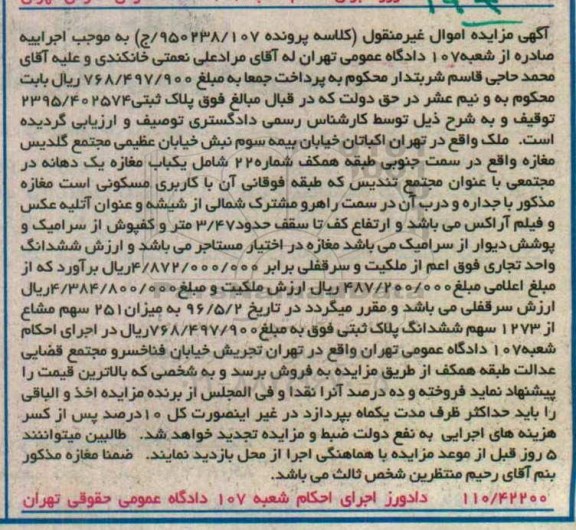 آگهی مزایده اموال غیرمنقول (کلاسه پرونده ۹۵۰۲۳۸/۱۰۷/ج) به موجب اجراییه
صادره از شعبه۱۰۷ دادگاه عمومی تهران له آقای مرادعلی نعمتی خانکندی و علیه آقای
محمد حاجی قاسم شربتدار محکوم به پرداخت جمعا به مبلغ ۷۶۸/۴۹۷/۹۰۰ ریال بابت
محکوم به و نیم عشر در حق دولت که در قبال مبالغ فوق پلاک ثبتی۲۳۹۵/۴۰۲۵۷۴
توقیف و به شرح ذیل توسط کارشناس رسمی دادگستری توصیف و ارزیابی گردیده
است. ملک واقع در تهران اکباتان خیابان بیمه سوم نبش خیابان عظیمی مجتمع گلدیس
مغازه واقع در سمت جنوبی طبقه همکف شماره۲۲ شامل یکباب مغازه یک دهانه در
مجتمعی با عنوان مجتمع تندیس که طبقه فوقانی آن با کاربری مسکونی است مغازه
مذکور با جداره و درب آن در سمت راهرو مشترک شمالی از شیشه و عنوان آتلیه عکس
و فیلم آراکس می باشد و ارتفاع کف تا سقف حدود۳/۴۷ متر و کفپوش از سرامیک و
پوشش دیوار از سرامیک می باشد مغازه در اختیار مستاجر می باشد و ارزش ششدانگ
واحد تجاری فوق اعم از ملکیت و سرقفلی برابر ۴/۸۷۲/۰۰۰/۰۰۰ریال برآورد که از
مبلغ اعلامی مبلغ۴۸۷/۲۰۰/۰۰۰ ریال ارزش ملکیت و مبلغ۴/۳۸۴/۸۰۰/۰۰۰ریال
ارزش سرقفلی می باشد و مقرر میگردد در تاریخ ۹۶/۵/۲ به میزان۲۵۱ سهم مشاع
از ۱۲۷۳ سهم ششدانگ پلاک ثبتی فوق به مبلغ۷۶۸/۴۹۷/۹۰۰ریال در اجرای احکام
شعبه۱۰۷ دادگاه عمومی تهران واقع در تهران تجریش خیابان فناخسرو مجتمع قضایی
عدالت طبقه همکف از طریق مزایده به فروش برسد و به شخصی که بالاترین قیمت را
پیشنهاد نماید فروخته و ده درصد آنرا نقدا و فی المجلس از برنده مزایده اخذ و الباقی
را باید حداکثر ظرف مدت یکماه بپردازد در غیر اینصورت کل ۱۰درصد پس از کسر
هزینه های اجرایی به نفع دولت ضبط و مزایده تجدید خواهد شد. طالبین میتوانند
۵ روز قبل از موعد مزایده با هماهنگی اجرا از محل بازدید نمایند. ضمنا مغازه مذکور
بنم آقای رحیم منتظرین شخص ثالث می باشد.
۱۱۰/۴۲۲۰۰ دادورز اجرای احکام شعبه ۱۰۷ دادگاه عمومی حقوقی تهران